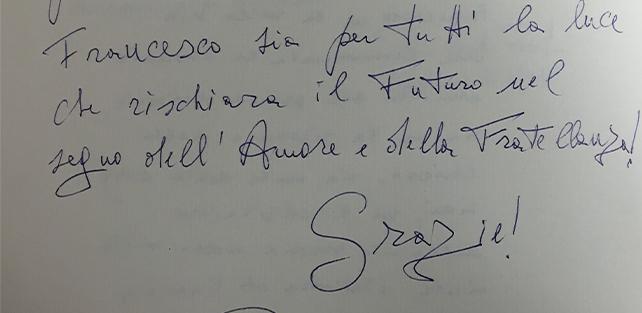 Francesco sia per tutti la luce
che rischiara il Futuro nel
segno dell'Amore e della Fratellanza!
Grazie!